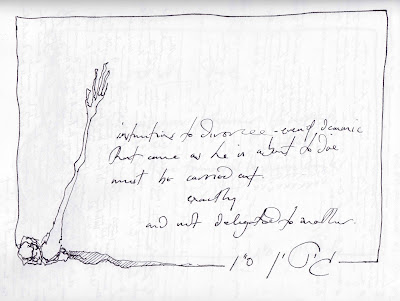 instructions to divorce - even if demonic
that came as he is about to die
must be carried out
exactly
and not delegated to another.
גיטין ס"ו